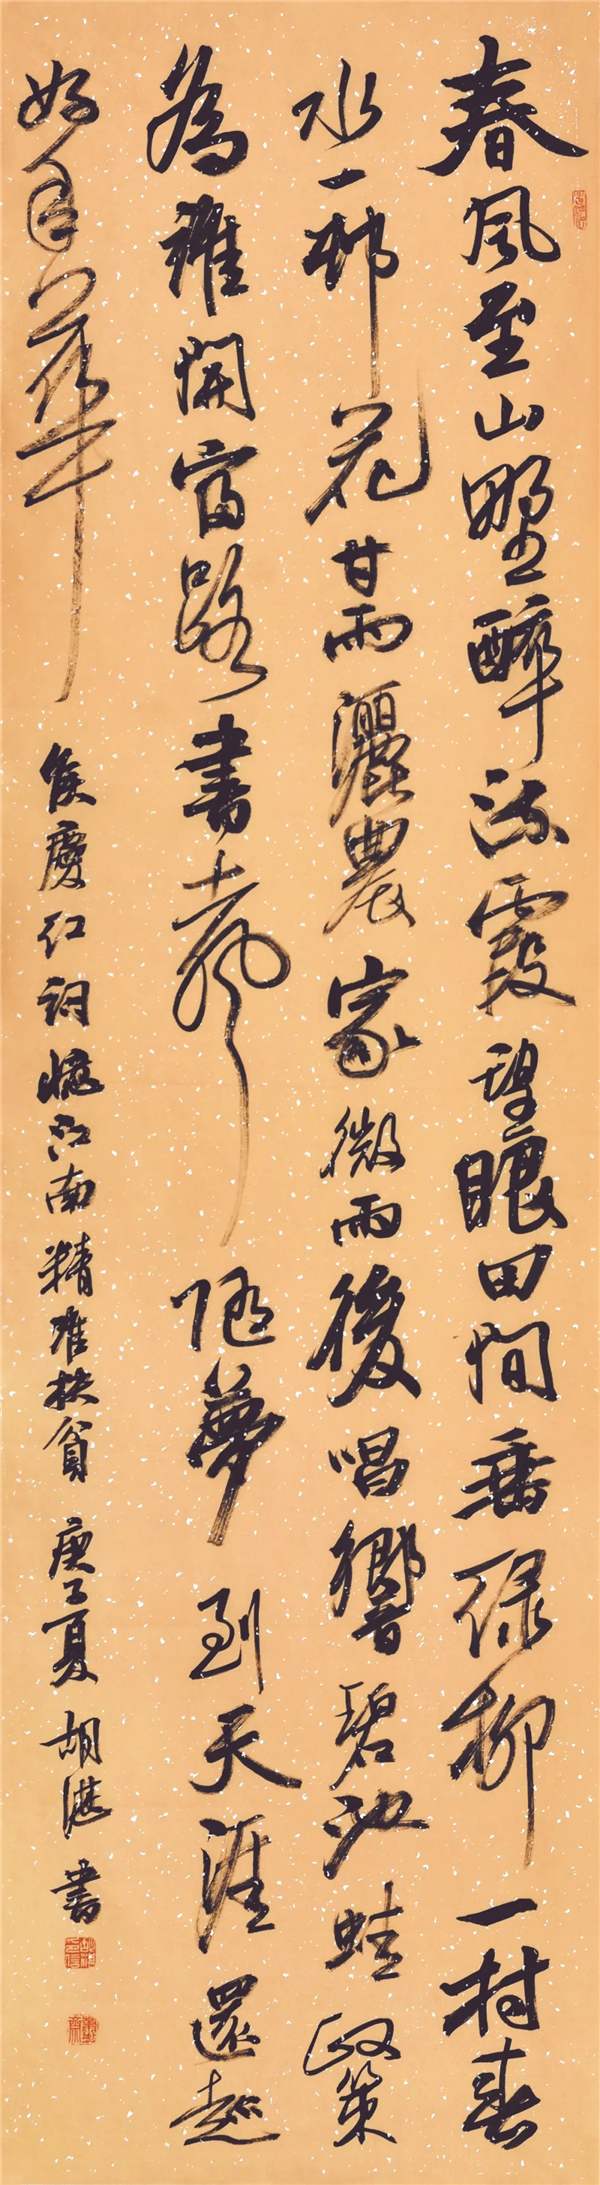 春風至山野醉流霞望眼田間垂绿柳一村春
水一邨花甘雨灑農家微雨後唱響碧池蛙政策
為誰開富路書聲隨夢到天涯還趁
好年華 侯慶红詞憶江南精准扶貧 庚子夏 胡湛書